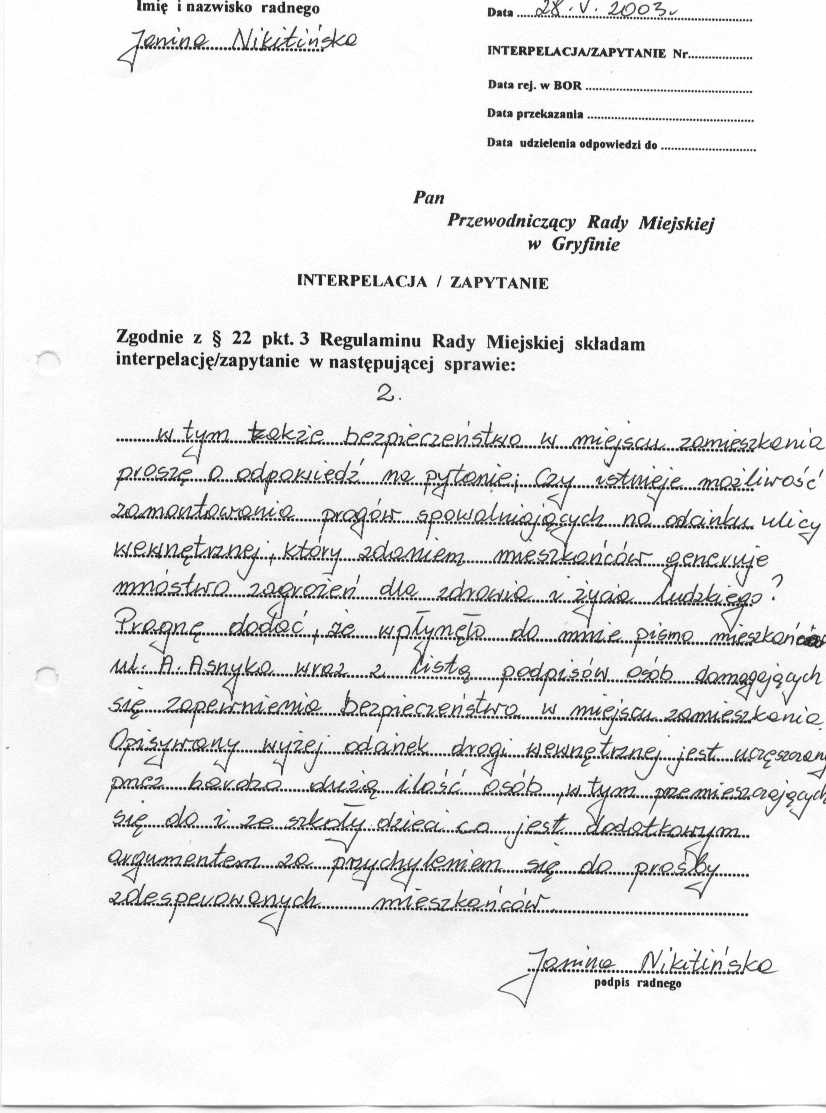 Imię i nazwisko radnego
Janina Nikitińska
Data 28.V.2003.
INTERPELACJA/ZAPYTANIE Nr
Data rej. w BOR
Data przekazania
Data udzielenia odpowiedzi do
Pan
Przewodniczący Rady Miejskiej
w Gryfinie
INTERPELACJA / ZAPYTANIE
Zgodnie z § 22 pkt. 3 Regulaminu Rady Miejskiej składam
interpelację/zapytanie w następującej sprawie:
2.
w tym także bezpieczeństwa w miejscu zamieszkania
proszę o odpowiedź na pytanie; Czy istnieje możliwość
zamontowania progów spowalniających na odcinku ulicy
wewnętrznej, który zdaniem mieszkańców generuje
mnóstwo zagrożeń dla zdrowia i życia ludzkiego?
Pragnę dodać, że wpłynęło do mnie pismo mieszkańców
ul. A. Asnyka wraz z listą podpisów osób domagających
się zapewnienia bezpieczeństwa w miejscu zamieszkania
Opisywany wyżej odcinek drogi wewnętrznej jest uczęszczany
przez bardzo dużą ilość osób, w tym przemieszczających
się do i ze szkoły dzieci co jest dodatkowym
argumentem za przychyleniem się do prośby
zdesperowanych mieszkańców.
Janina Nikitińska
podpis radnego